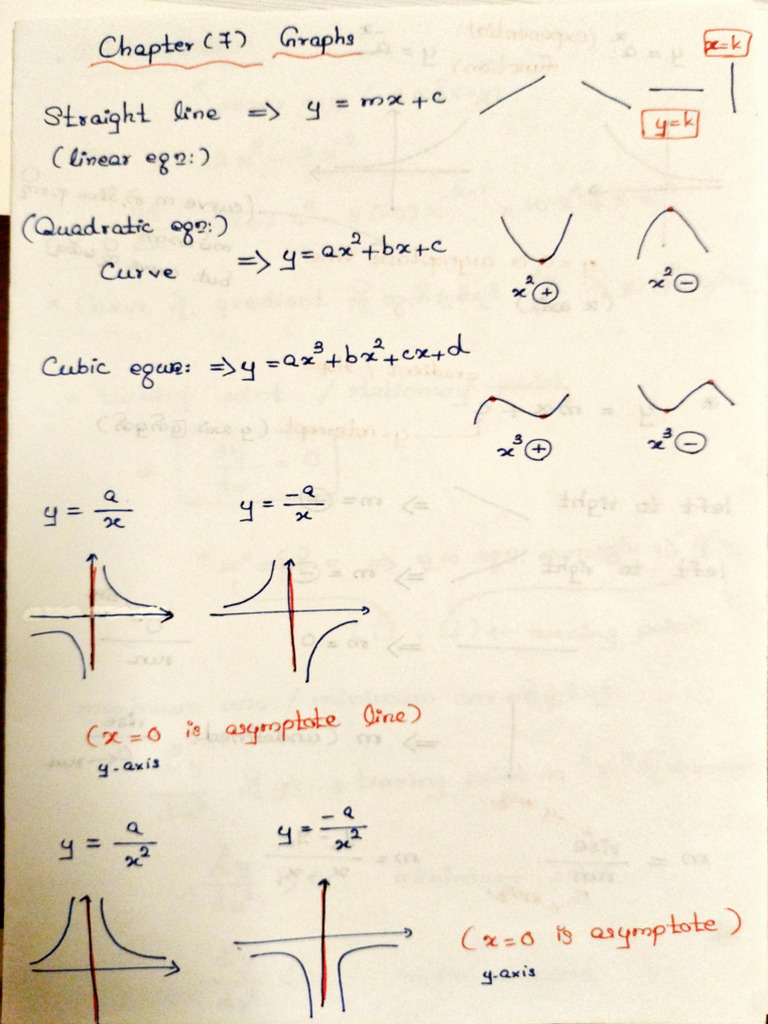 Chapter (7) Graphs
x=k
Straight line => y = mx+c
y=k
(linear eqn:)
(Quadratic eqn:)
Curve => y=ax²+bx+c
x² + x² -
Cubic equn: => y=ax³+bx²+cx+d
x³ + x³ -
y = a/x y = -a/x
(x=0 is asymptote line)
y-axis
y = a/x² y = -a/x²
(x=0 is asymptote)
y-axis